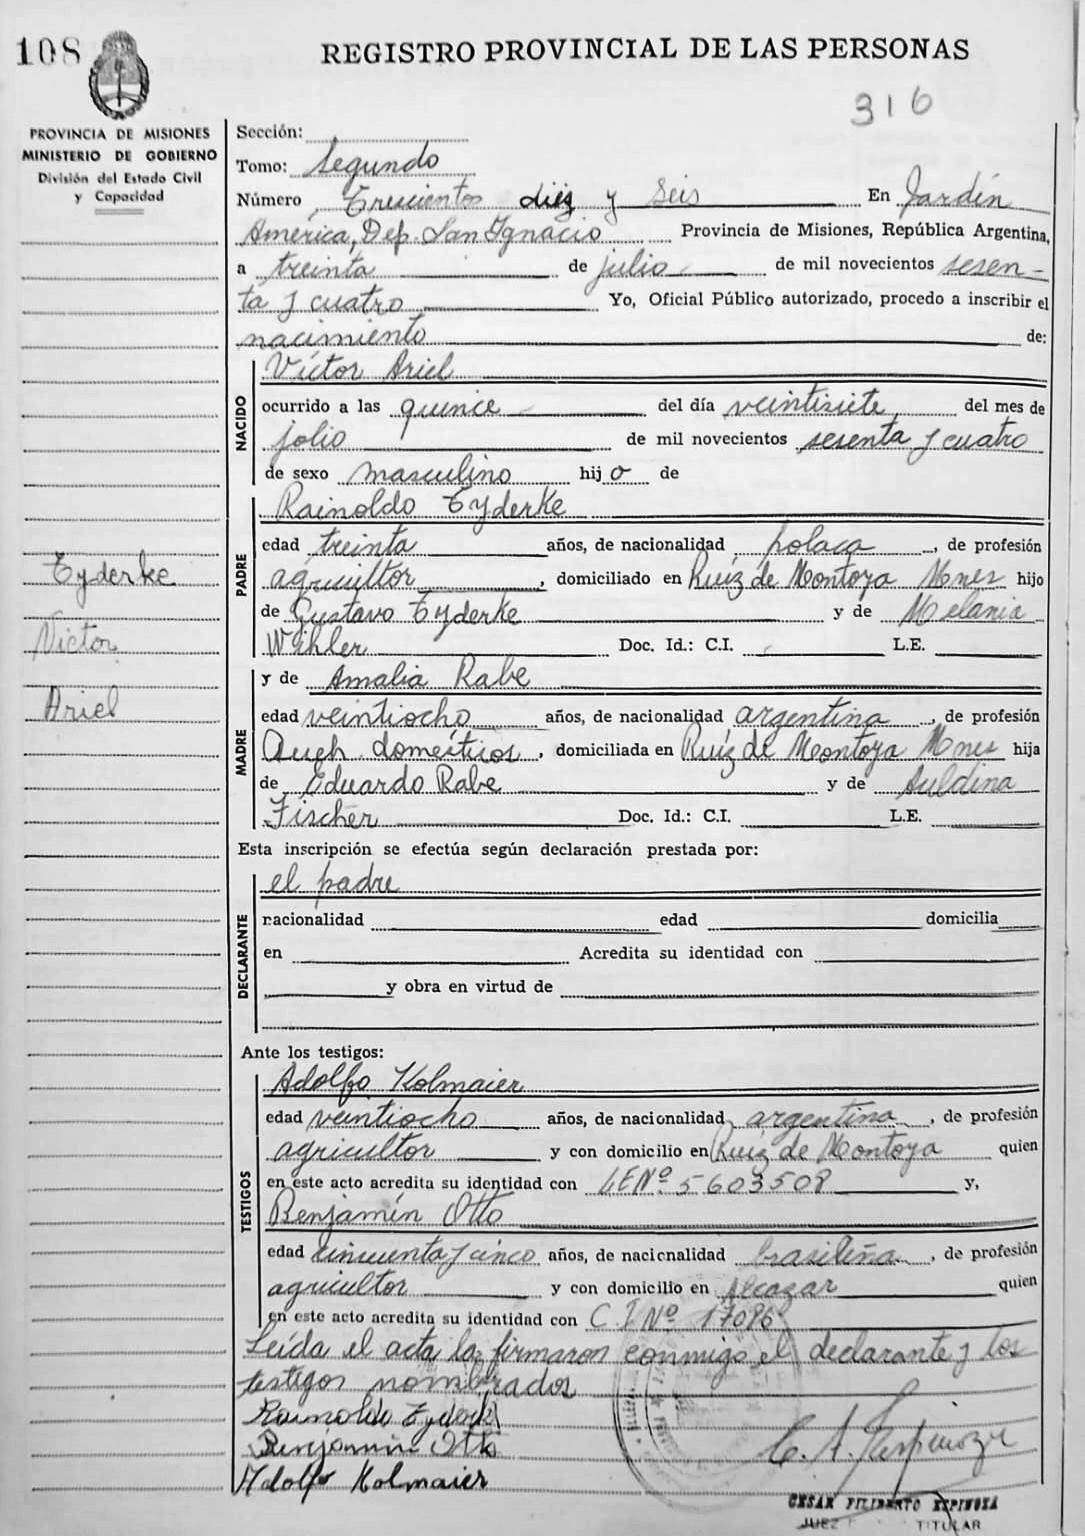 108
REGISTRO PROVINCIAL DE LAS PERSONAS
316
PROVINCIA DE MISIONES
MINISTERIO DE GOBIERNO
División del Estado Civil
y Capacidad
Sección:
Tomo: Segundo
Número Trescientos diéz y Seis En Jardín
América, Dep. San Ignacio Provincia de Misiones, República Argentina,
a treinta de julio de mil novecientos sesen-
ta y cuatro Yo, Oficial Público autorizado, procedo a inscribir el
nacimiento de:
NACIDO
Víctor Ariel
ocurrido a las quince del día veintisiete del mes de
jolio de mil novecientos sesenta y cuatro
de sexo masculino hijo de
PADRE
Rainoldo Tyderke
edad treinta años, de nacionalidad polaca, de profesión
agricultor, domiciliado en Ruíz de Montoya Mnes hijo
de Gustavo Tyderke y de Melania
Weihler Doc. Id.: C.I. L.E.
Tyderke
Victor
Ariel
y de Amalia Rabe
MADRE
edad veintiocho años, de nacionalidad argentina, de profesión
Queh. domésticos, domiciliada en Ruíz de Montoya Mnes hija
de Eduardo Rabe y de Auldina
Fischer Doc. Id.: C.I. L.E.
Esta inscripción se efectúa según declaración prestada por:
DECLARANTE
el padre
nacionalidad edad domicilia
en Acredita su identidad con
y obra en virtud de
Ante los testigos:
TESTIGOS
Adolfo Kolmaier
edad veintiocho años, de nacionalidad argentina, de profesión
agricultor y con domicilio en Ruíz de Montoya quien
en este acto acredita su identidad con LE Nº 5603508 y,
Benjamín Otto
edad cincuenta y cinco años, de nacionalidad brasileña, de profesión
agricultor y con domicilio en Alcazar quien
en este acto acredita su identidad con C.I Nº 17086
Leída el acta la firmaron conmigo el declarante y los
testigos nombrados
Rainoldo Tyderke
Benjamin Otto
Adolfo Kolmaier
C. A. Espinoza
CESAR FILIBERTO ESPINOZA
JUEZ TITULAR